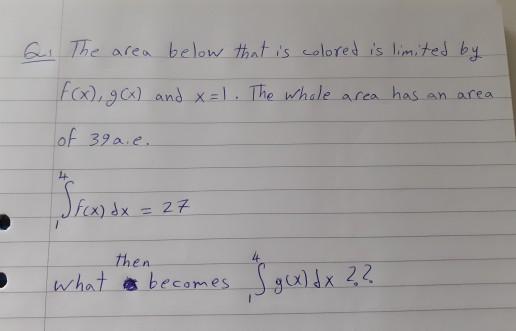 Q1 The area below that is colored is limited by
f(x), g(x) and x=1. The whole area has an area
of 39 a.e.
4
∫ f(x) dx = 27
1
then
what becomes ∫₁⁴ g(x) dx ??